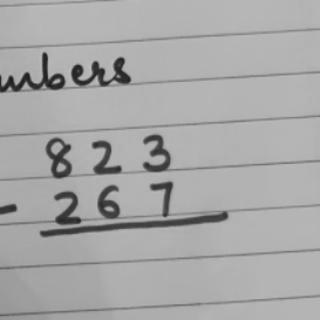 mbers
823
- 267